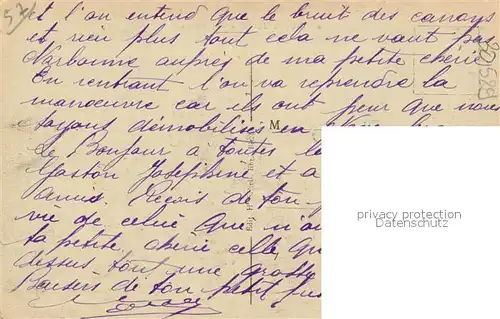 t l'on entend que le bruit des canons
et rien plus tout cela ne vaut pas
Narbonne aupres de ma petite cherie
En rentrant l'on va reprendre la
manoeuvre car ils ont peur que nous
soyons démobilisés en
M
Le Bonjour à toutes
Gaston Josephine et a
Amis. Reçois de ton
vie de celui que n'
ta petite cherie celle que
dessus tout une grosse
Baisers de ton petit
privacy protection
www.ansichtskarten-center.de